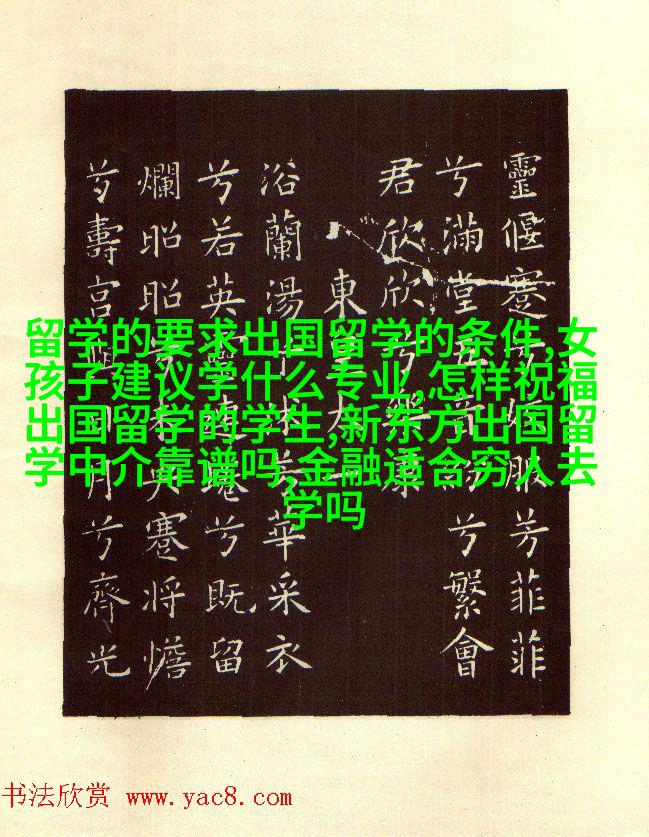 靈偃蹇兮姣服芳菲菲
兮滿堂五音紛兮繁會
君欣欣兮樂康
東皇太一
浴蘭湯兮沐芳華采衣
兮若英靈連蜷兮既留
爛昭昭兮未央蹇將憺
兮壽宮與日月兮齊光
留学的要求出国留学的条件,女
孩子建议学什么专业,怎样祝福
出国留学的学生,新东方出国留
学中介靠谱吗,金融适合穷人去
学吗
书法欣赏 www.yac8.com